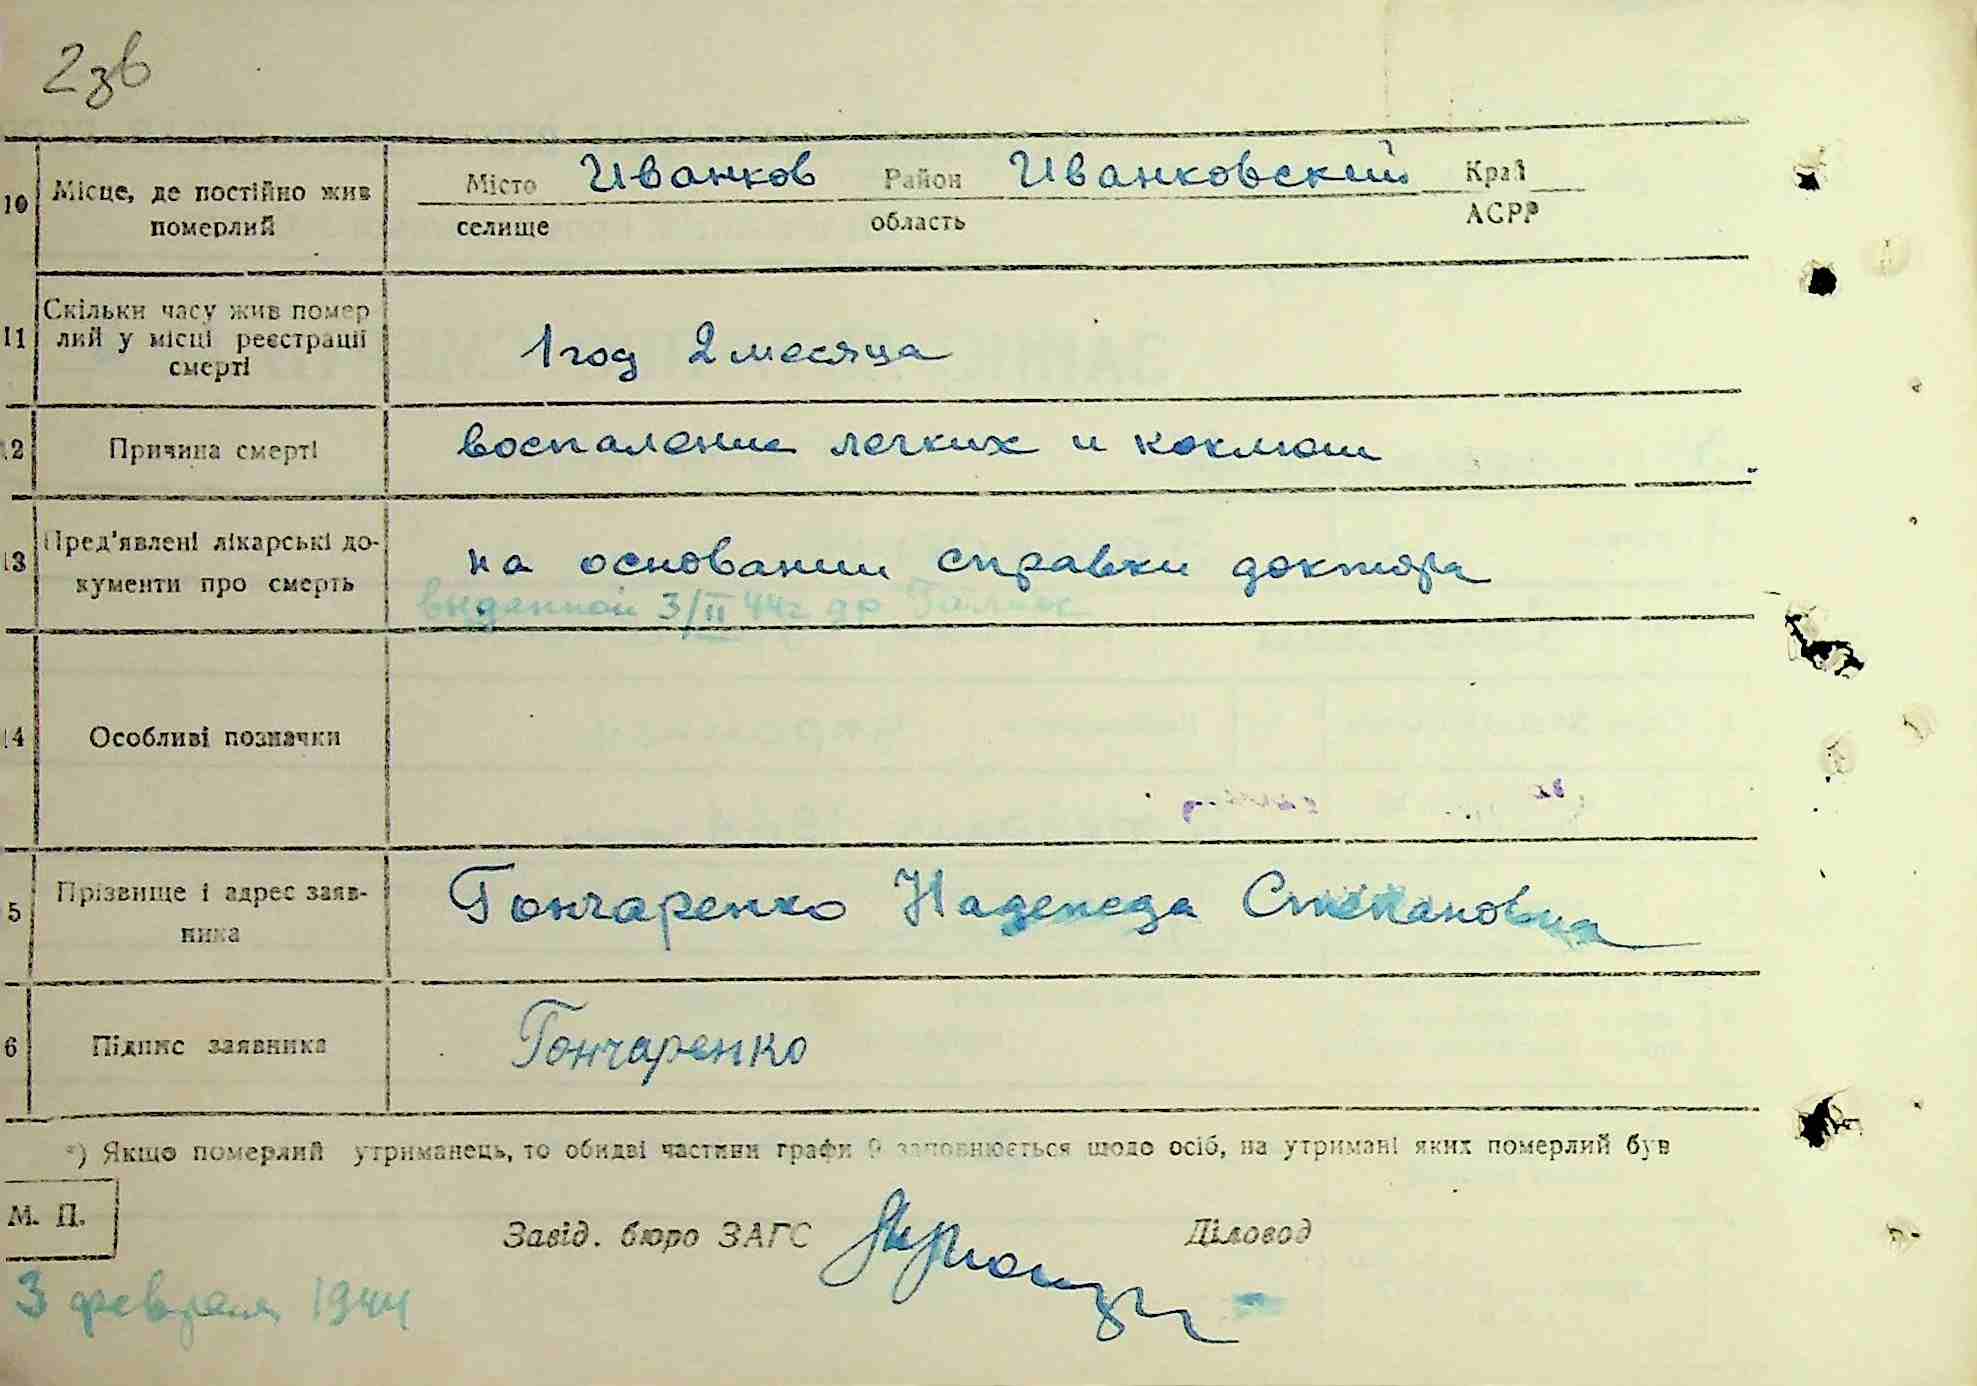 2зв
10 Місце, де постійно жив померлий
Місто Иванков Район Иванковский Край
селище область АСРР
11 Скільки часу жив помер
лий у місці реєстрації
смерті
1 год 2 месяца
12 Причина смерті воспаление легких и коклюш
13 Пред'явлені лікарські до-
кументи про смерть
на основании справки доктора
выданной 3/II 44г др
14 Особливі позначки
5 Прізвище і адрес заяв-
ника
Гончаренко Надежда Степановна
6 Підпис заявника Гончаренко
*) Якщо померлий утриманець, то обидві частини графи 9 заповнюється щодо осіб, на утримані яких померлий був
М. П.
Завід. бюро ЗАГС Діловод
3 февраля 1944